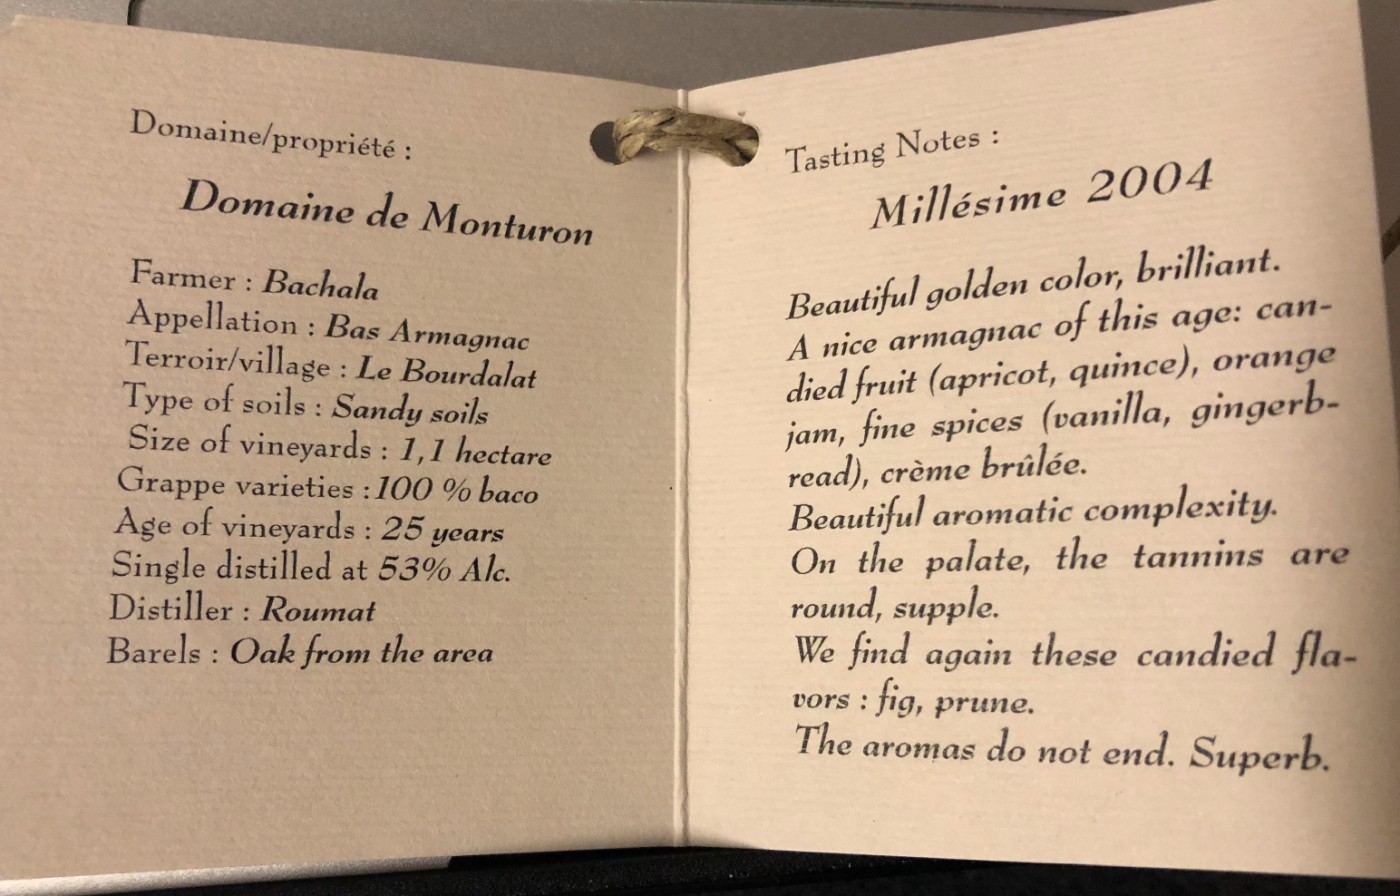 Domaine/propriété :
Domaine de Monturon
Farmer : Bachala
Appellation : Bas Armagnac
Terroir/village : Le Bourdalat
Type of soils : Sandy soils
Size of vineyards : 1,1 hectare
Grappe varieties :100 % baco
Age of vineyards : 25 years
Single distilled at 53% Alc.
Distiller : Roumat
Barels : Oak from the area
Tasting Notes :
Millésime 2004
Beautiful golden color, brilliant.
A nice armagnac of this age: can-
died fruit (apricot, quince), orange
jam, fine spices (vanilla, gingerb-
read), crème brûlée.
Beautiful aromatic complexity.
On the palate, the tannins are
round, supple.
We find again these candied fla-
vors : fig, prune.
The aromas do not end. Superb.